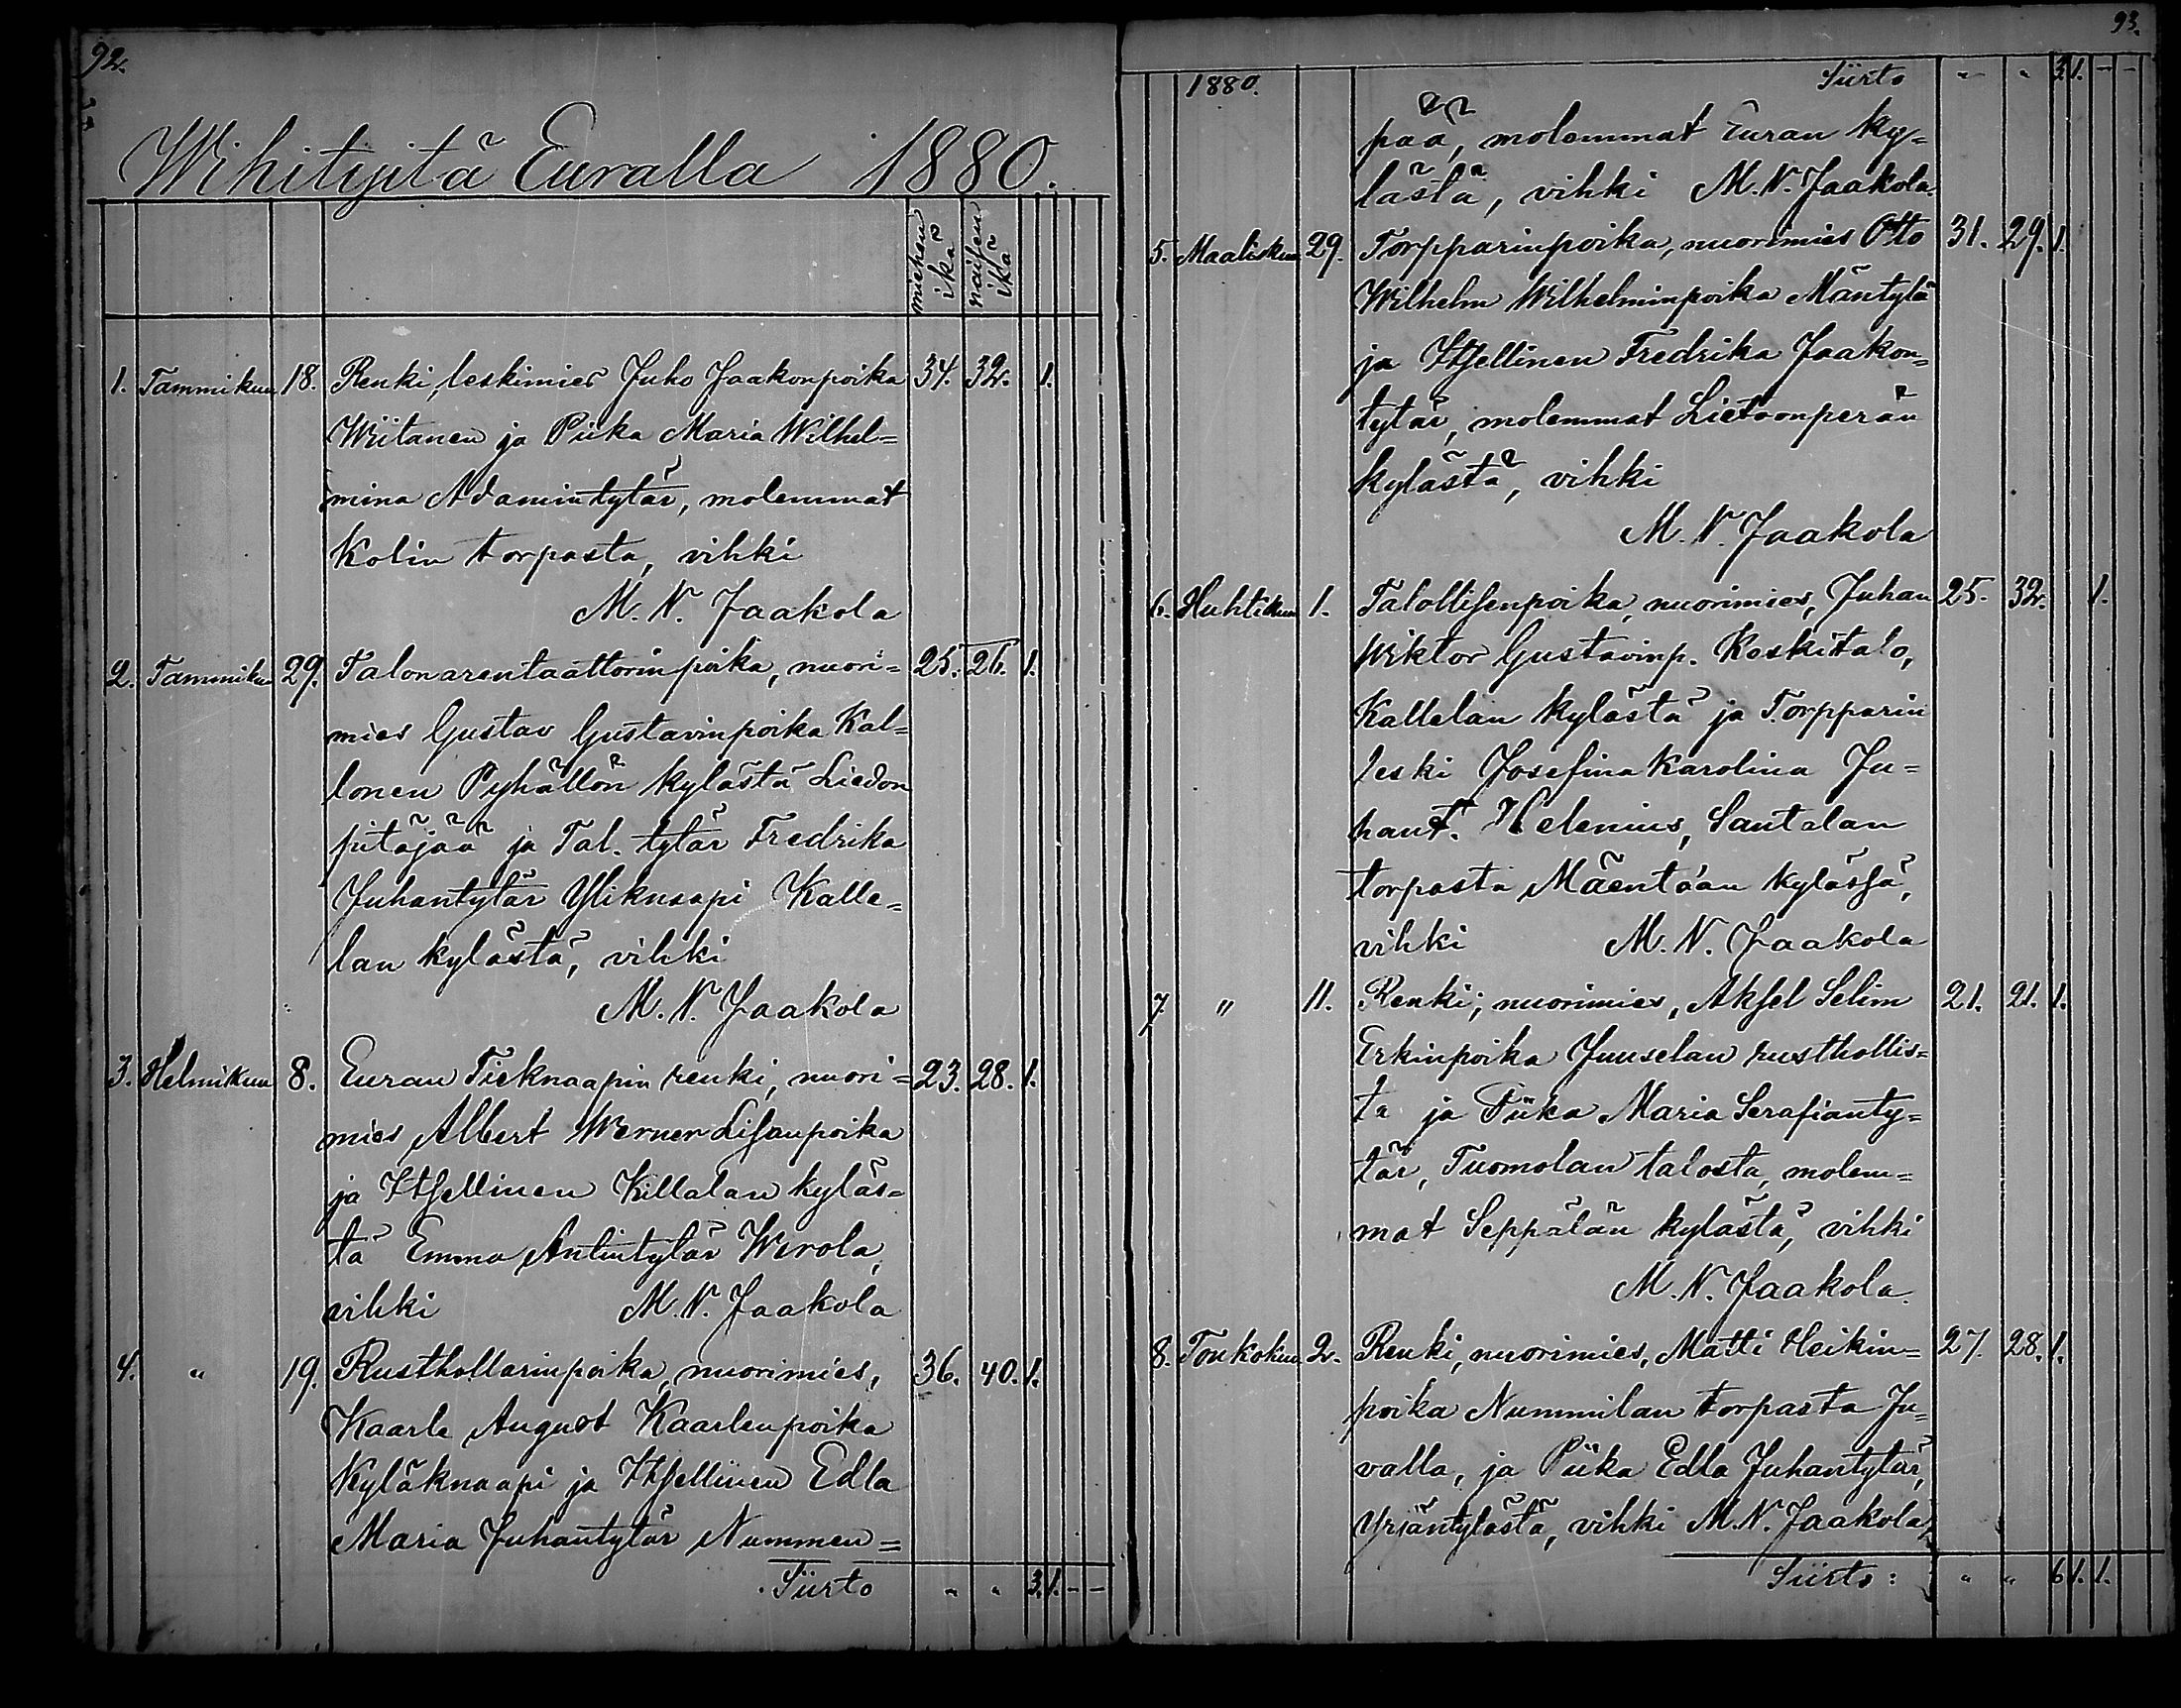 92.
Wihityitä Euralla 1880.
miehen ikä
naisen ikä
1. Tammikuun 18. Renki, leskimies Juho Jaakonpoika 34. 32. 1.
Wiitanen ja Piika Maria Wilhel=
mina Adamintytär, molemmat
Kolin torpasta, vihki
M. N. Jaakola
2. Tammiku 29. Talonarentaattorinpoika, nuori= 25. 26. 1.
mies Gustav Gustavinpoika Kal=
lonen Pyhällön kylästä Liedon
pitäjää ja Tal. tytär Fredrika
Juhantytär Yliknaapi Kalle=
lan kylästä, vihki
M. N. Jaakola
3. Helmikuun 8. Euran Tieknaapin renki, nuori= 23. 28. 1.
mies Albert Werner Lisanpoika
ja Itsellinen Killalan kyläs=
tä Emma Antintytär Werola,
vihki M. N. Jaakola
4. " 19. Rusthollarinpoika, nuorimies, 36. 40. 1.
Kaarle August Kaarlenpoika
Kyläknaapi ja Itsellinen Edla
Maria Juhantytär Nummen=
Siirto " " 3. 1. - -
93.
1880. Siirto " " 3. 1. - -
pää, molemmat Euran ky=
lästä, vihki M. N. Jaakola.
5. Maaliskuun 29. Torpparinpoika, nuorimies Otto 31. 29. 1.
Wilhelm Wilhelminpoika Mäntylä
ja Itsellinen Fredrika Jaakon=
tytär, molemmat Lietsonperän
kylästä, vihki
M. N. Jaakola
6. Huhtikuu 1. Talollisenpoika, nuorimies, Juhan 25. 32. 1.
Wiktor Gustavinp. Keskitalo,
Kallelan kylästä ja Torpparin
leski Josefina Karolina Ju=
hant. Helenius, Santalan
torpasta Mäentaan kylässä,
vihki M. N. Jaakola
7. " 11. Renki; nuorimies, Aksel Selim 21. 21. 1.
Erkinpoika Juuselan rusthollis=
ta ja Piika Maria Serafianty=
tär, Tuomolan talosta, molem=
mat Seppälän kylästä, vihki
M. N. Jaakola.
8. Toukokuu 2. Renki, nuorimies, Matti Heikin= 27. 28. 1.
poika Nummilan torpasta Ju=
valla, ja Piika Edla Juhantytär,
Yrjäntylästä, vihki M. N. Jaakola
Siirto: " " 6 1. 1.